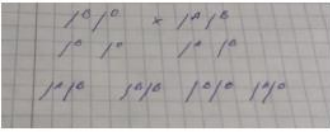 Iᴮ Iᴼ × Iᴬ Iᴮ
Iᴮ Iᴼ Iᴬ Iᴮ
Iᴬ Iᴮ Iᴮ Iᴮ Iᴮ Iᴼ Iᴬ Iᴼ